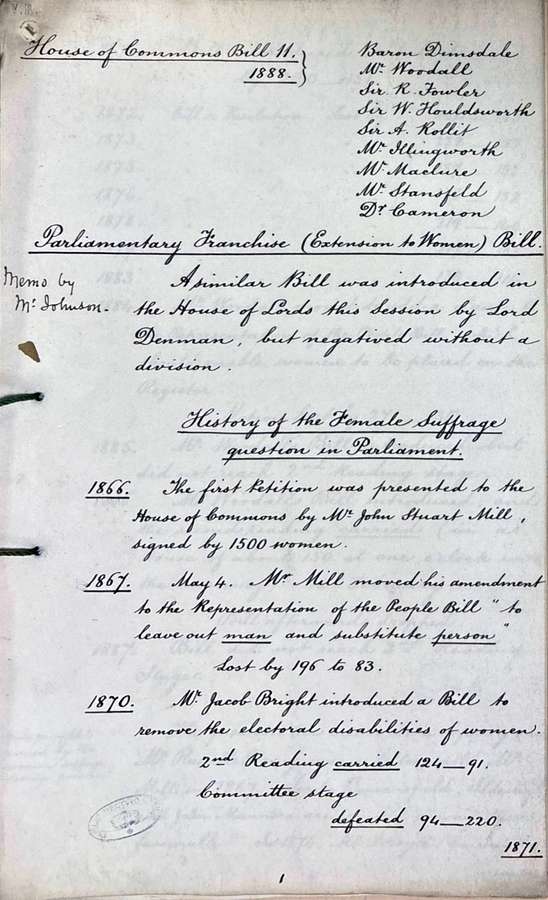 House of Commons Bill 11.
1888.
Baron Dimsdale
Mr. Woodall
Sir R. Fowler
Sir W. Houldsworth
Sir A. Rollit
Mr. Illingworth
Mr. Maclure
Mr. Stansfeld
Dr. Cameron
Parliamentary Franchise (Extension to Women) Bill.
Memo by
Mr. Johnson.
A similar Bill was introduced in
the House of Lords this Session by Lord
Denman, but negatived without a
division.
History of the Female Suffrage
question in Parliament.
1866. The first Petition was presented to the
House of Commons by Mr. John Stuart Mill,
signed by 1500 women.
1867. May 4. Mr. Mill moved his amendment
to the Representation of the People Bill "to
leave out man and substitute person"
Lost by 196 to 83.
1870. Mr. Jacob Bright introduced a Bill to
remove the electoral disabilities of women.
2nd Reading carried 124—91.
Committee stage
defeated 94—220.
1871.
1